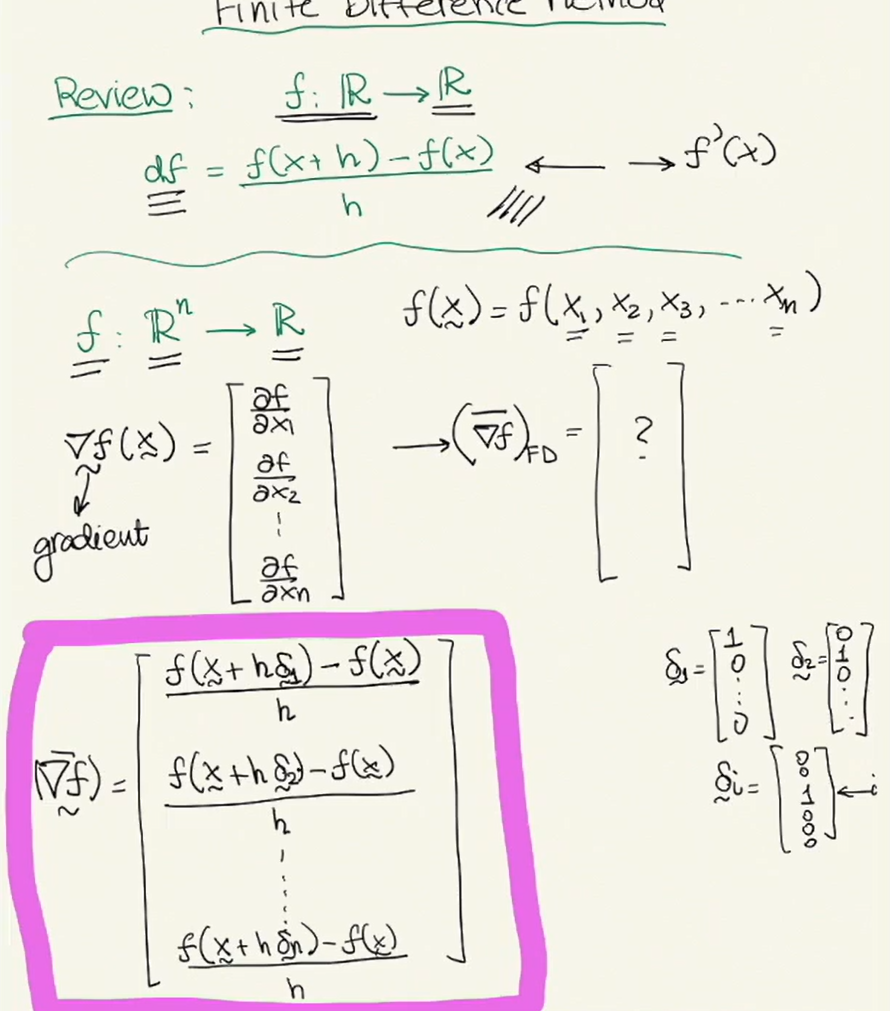 Finite Difference Method
Review: f: ℝ → ℝ
df = (f(x+h) - f(x)) / h ← → f'(x)
f: ℝⁿ → ℝ f(x) = f(x₁, x₂, x₃, ... xₙ)
∇f(x) = [∂f/∂x₁ ∂f/∂x₂ ⋮ ∂f/∂xₙ] → (∇̅f)_FD = [?]
gradient
(∇̅f) = [(f(x+hδ₁) - f(x)) / h
(f(x+hδ₂) - f(x)) / h
⋮
(f(x+hδₙ) - f(x)) / h]
δ₁ = [1 0 ⋮ 0] δ₂ = [0 1 0 ⋮]
δᵢ = [0 0 1 0 0 0] ← i